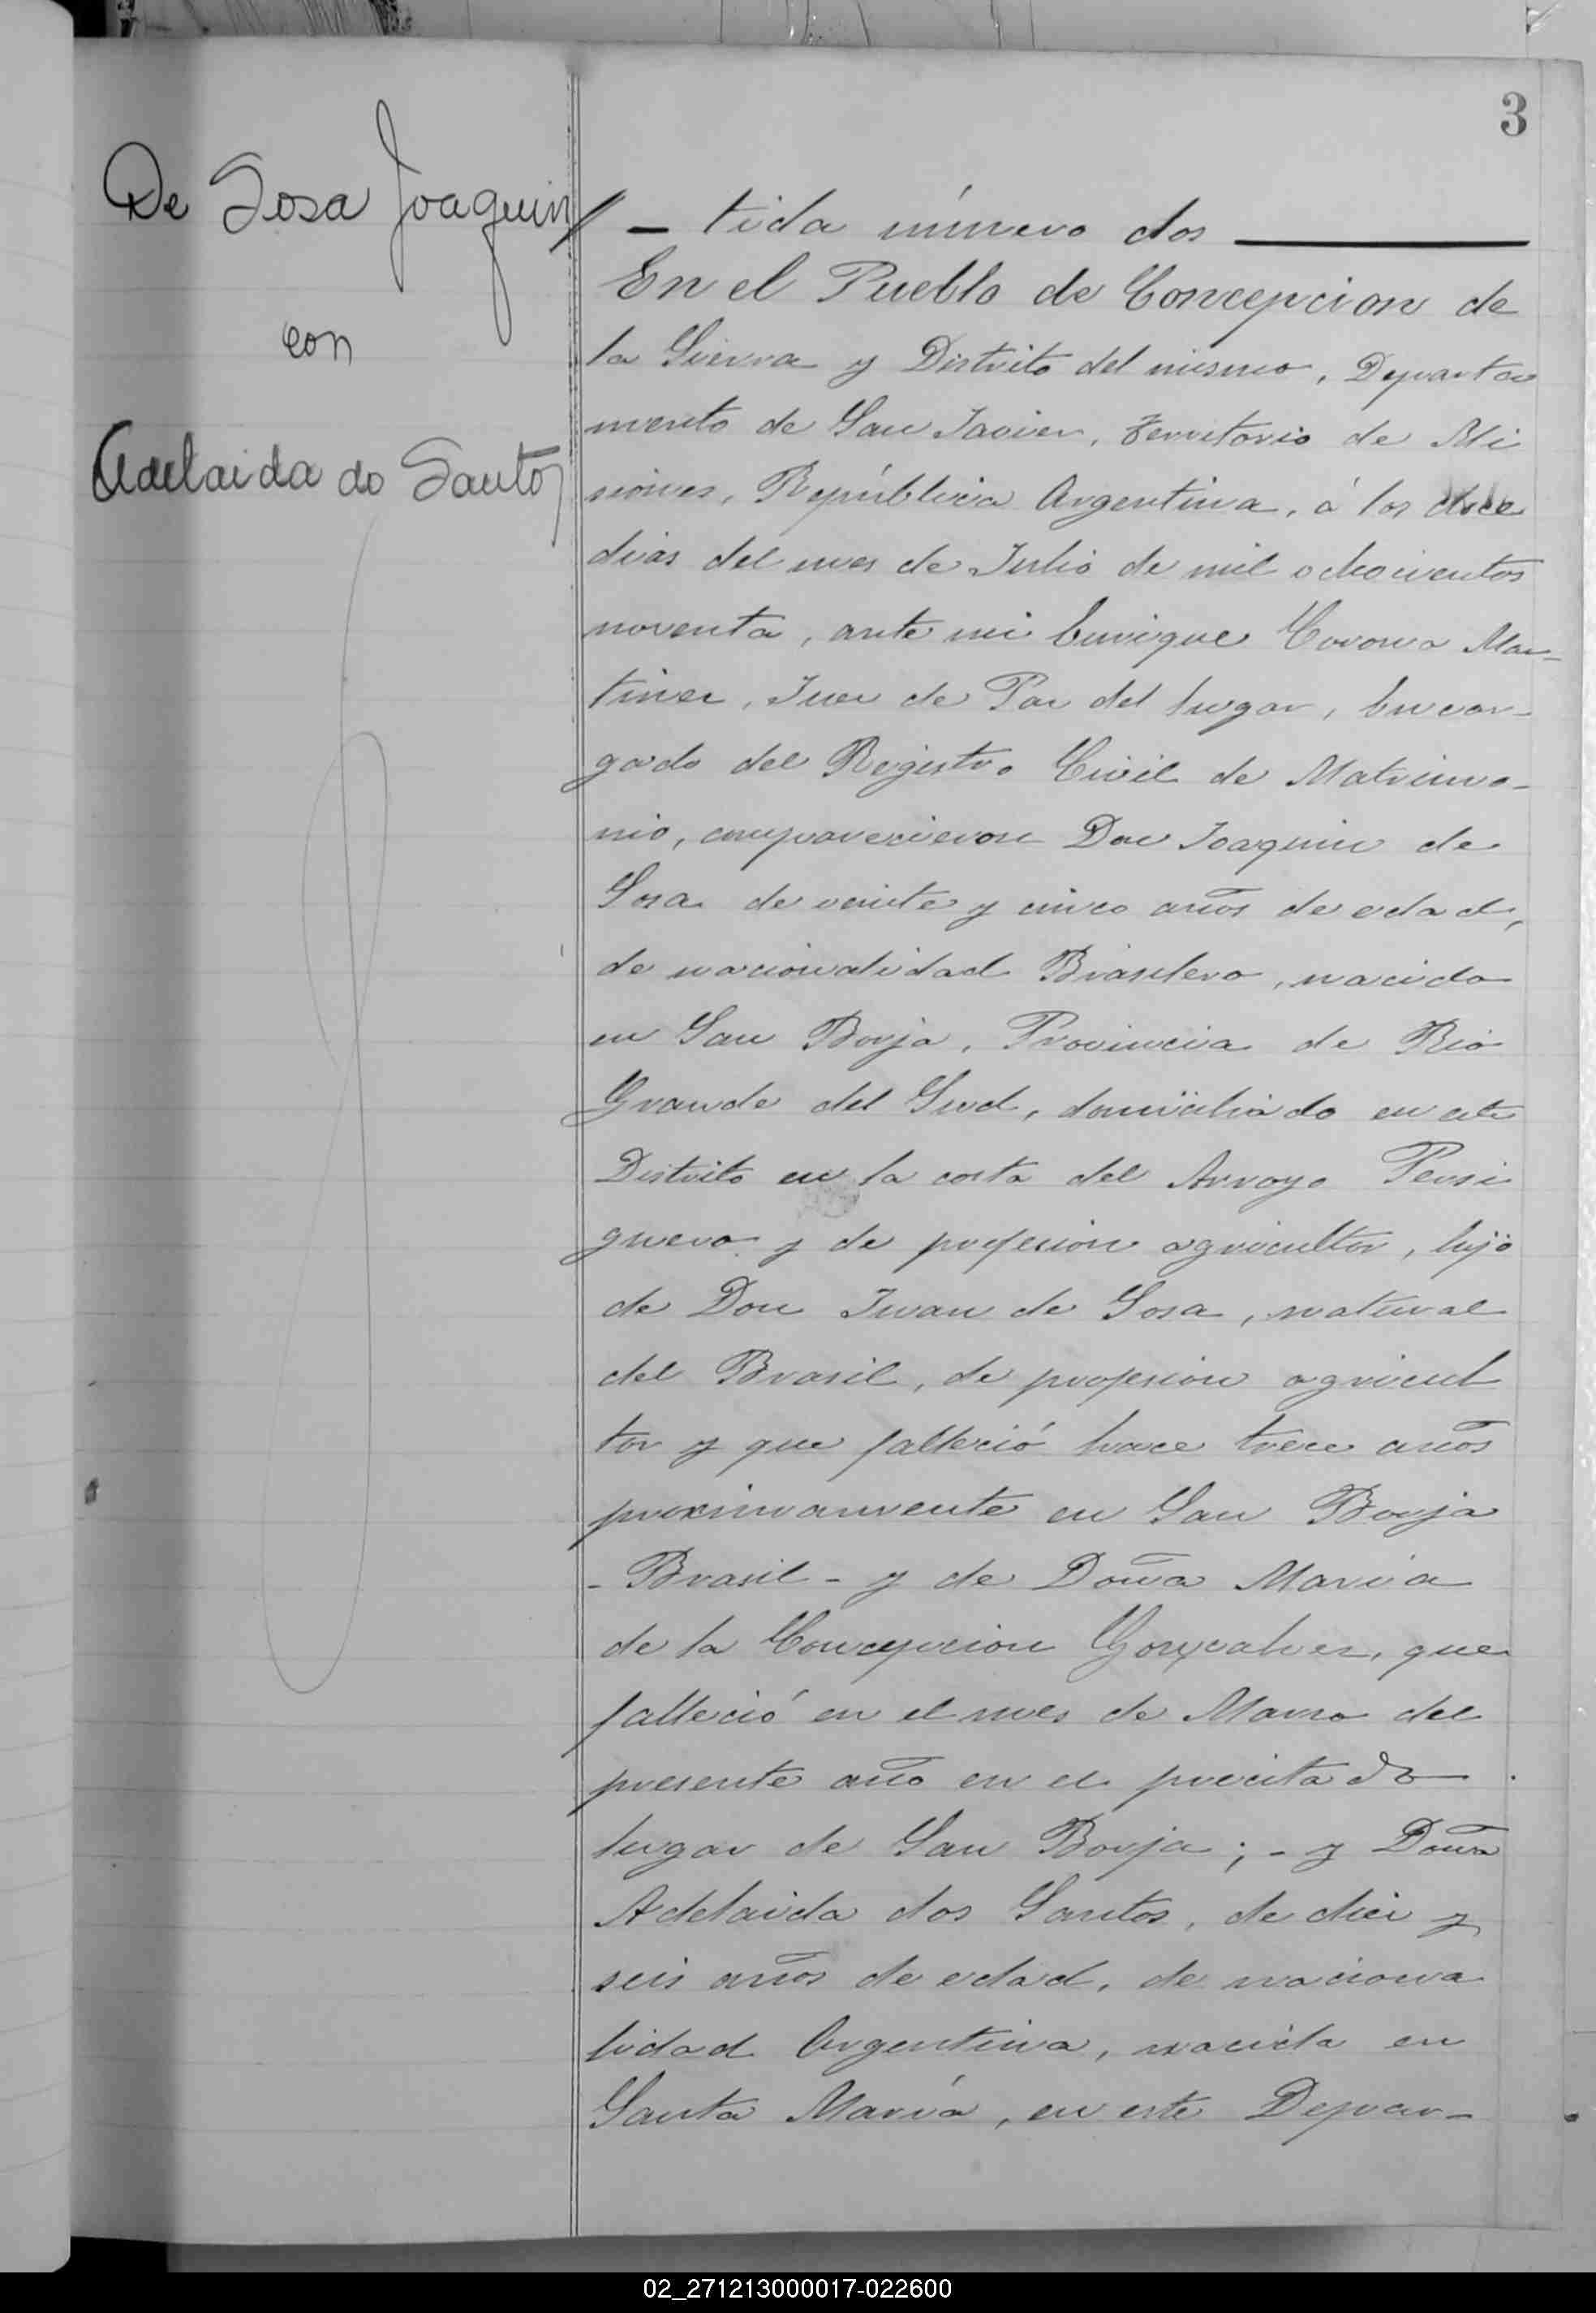 3
De Sosa Joaquin
con
Adelaida do Santos
- tida número dos
En el Pueblo de Concepcion de
la Sierra y Distrito del mismo, Departa
mento de San Javier, Territorio de Mi
siones, República Argentina, á los doce
dias del mes de Julio de mil ochocientos
noventa, ante mi Enrique Corona Mar-
tinez, Juez de Paz del lugar, Encar-
gado del Registro Civil de Matrimo-
nio, comparecieron Don Joaquin de
Sosa de veinte y cinco años de edad,
de nacionalidad Brasilero, nacido
en San Borja, Provincia de Rio
Grande del Sud, domiciliado en este
Distrito en la costa del Arroyo Persi
guero y de profesion agricultor, hijo
de Don Juan de Sosa, natural
del Brasil, de profesion agricul
tor y que falleció hace trece años
proximamente en San Borja
- Brasil - y de Doña Maria
de la Concepcion Gonçalves, que
falleció en el mes de Marzo del
presente año en el precitado
lugar de San Borja; - y Doña
Adelaida dos Santos, de diez y
seis años de edad, de naciona
lidad Argentina, nacida en
Santa María, en este Depar-
02_271213000017-022600